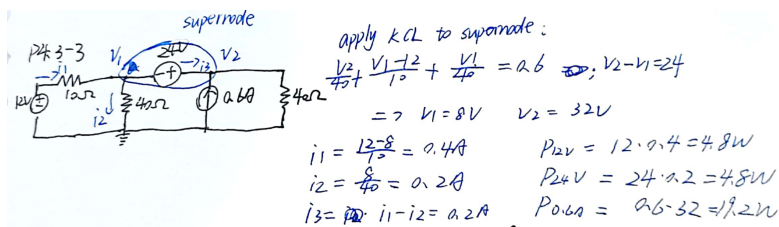 supernode
P4.3-3
i1
V1
24V
i3
V2
12V
10Ω
i2
40Ω
0.6A
40Ω
apply KCL to supernode:
V2/40 + V1-12/10 + V1/40 = 0.6 ; V2-V1=24
=> V1=8V V2=32V
i1 = 12-8/10 = 0.4A
i2 = 8/40 = 0.2A
i3 = i1-i2 = 0.2A
P12V = 12·0.4=4.8W
P24V = 24·0.2=4.8W
P0.6A = 0.6·32=19.2W